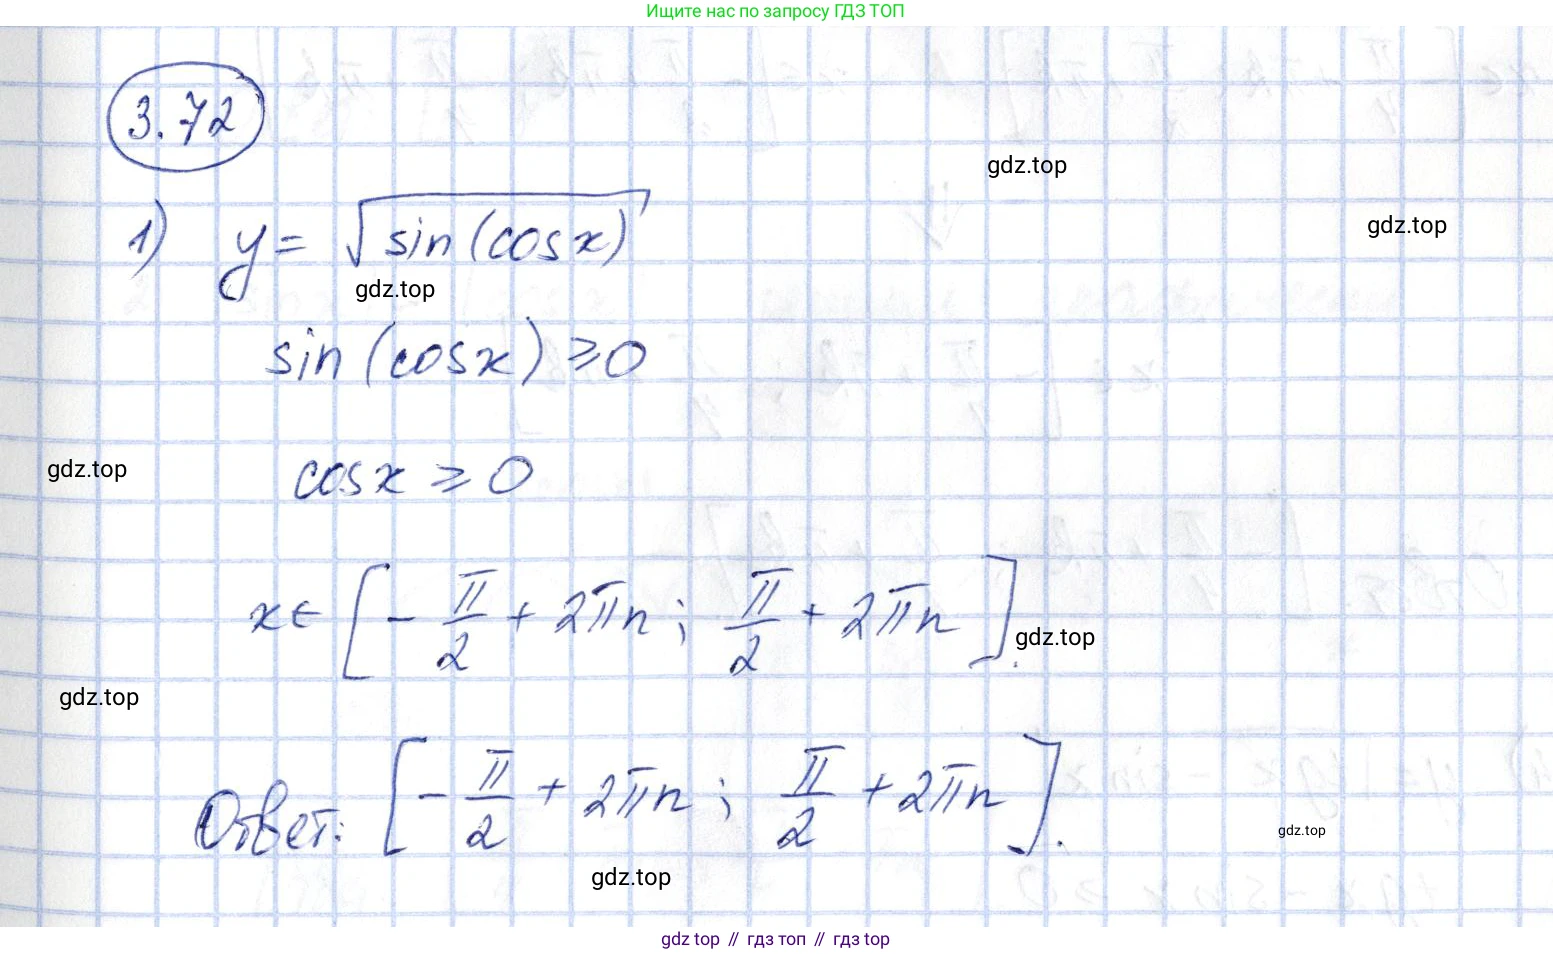 Ищите нас по запросу ГДЗ ТОП
3.72
gdz.top
gdz.top
1) y = √sin(cosx)
gdz.top
sin(cosx) ⩾ 0
gdz.top
cosx ⩾ 0
x ∈ [-π/2 + 2πn; π/2 + 2πn].
gdz.top
gdz.top
Ответ: [-π/2 + 2πn; π/2 + 2πn].
gdz.top
gdz.top
gdz top // гдз топ // гдз top